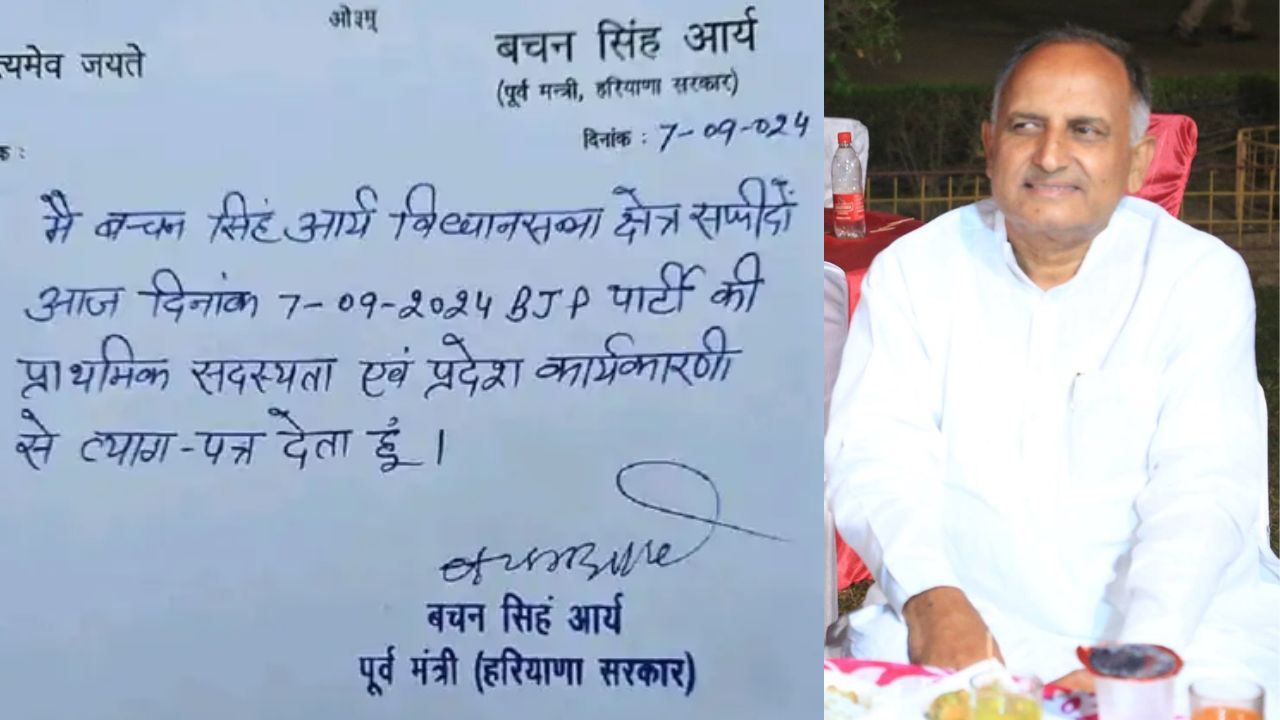 ओ३म्
त्यमेव जयते
बचन सिंह आर्य
(पूर्व मन्त्री, हरियाणा सरकार)
दिनांक : 7-09-024
क :
मै बच्चन सिहं आर्य विधानसभा क्षेत्र सफीदों
आज दिनांक 7-09-2024 BJP पार्टी की
प्राथमिक सदस्यता एवं प्रदेश कार्यकारणी
से त्याग-पत्र देता हूं।
बचन सिहं आर्य
पूर्व मंत्री (हरियाणा सरकार)